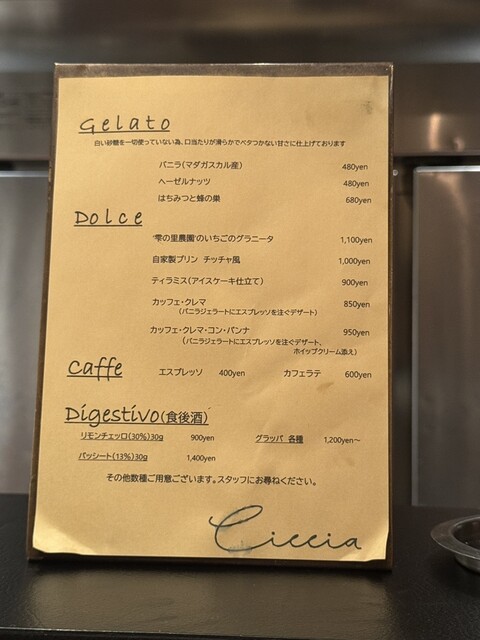 Gelato
白い砂糖を一切使っていない為、口当たりが滑らかでベタつかない甘さに仕上げております
バニラ(マダガスカル産) 480yen
ヘーゼルナッツ 480yen
はちみつと蜂の巣 680yen
Dolce
"雫の里農園"のいちごのグラニータ 1,100yen
自家製プリン チッチャ風 1,000yen
ティラミス(アイスケーキ仕立て) 900yen
カッフェ・クレマ 850yen
(バニラジェラートにエスプレッソを注ぐデザート)
カッフェ・クレマ・コン・パンナ 950yen
(バニラジェラートにエスプレッソを注ぐデザート、
ホイップクリーム添え)
Caffe エスプレッソ 400yen カフェラテ 600yen
Digestivo(食後酒)
リモンチェッロ(30%)30g 900yen グラッパ 各種 1,200yen~
パッシート(13%)30g 1,400yen
その他数種ご用意ございます。スタッフにお尋ねください。
Ciccia